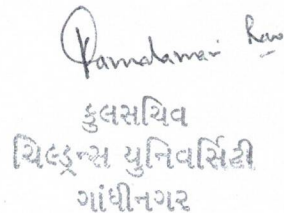 કુલસચિવ
ચિલ્ડ્રન્સ યુનિવર્સિટી
ગાંધીનગર